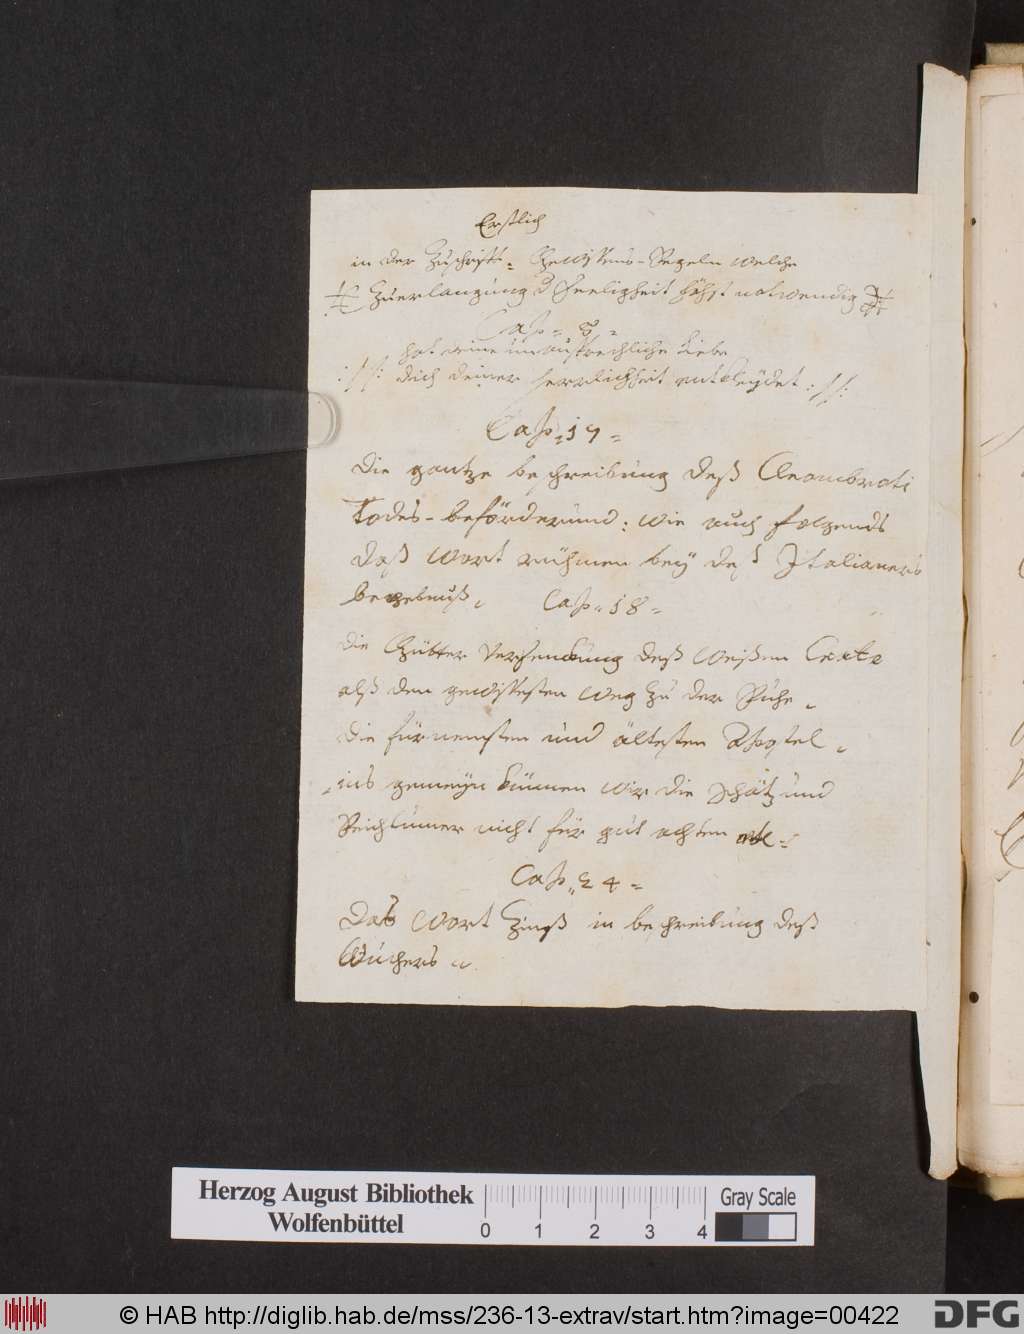 Erstlich
in der Zuschrifft, Gewissens-Regeln welche
Zuerlangung d Seeligheit höhst notwendig
Cap. 8.
hat deine unaußsprechliche Liebe
dich deiner Herrlichkeit entkleydet
Cap. 17.
Die gantze beschreibung deß Cleombroti
Todes-beförderund: wie auch folgends
daß wort rühmen bey deß Italianers
begebnuß. Cap. 18.
die Gütter Versenckung deß weißen Crate
alß den gewissesten weg zu der Ruhe.
die fürnemsten und ältesten Apostel.
ins gemeyn können wir die Schätz und
Reichtumer nicht für gut achten
Cap. 24.
Das wort Zinß in beschreibung deß
Wuchers.
Herzog August Bibliothek
Wolfenbüttel
0 1 2 3 4
Gray Scale
© HAB http://diglib.hab.de/mss/236-13-extrav/start.htm?image=00422
DFG